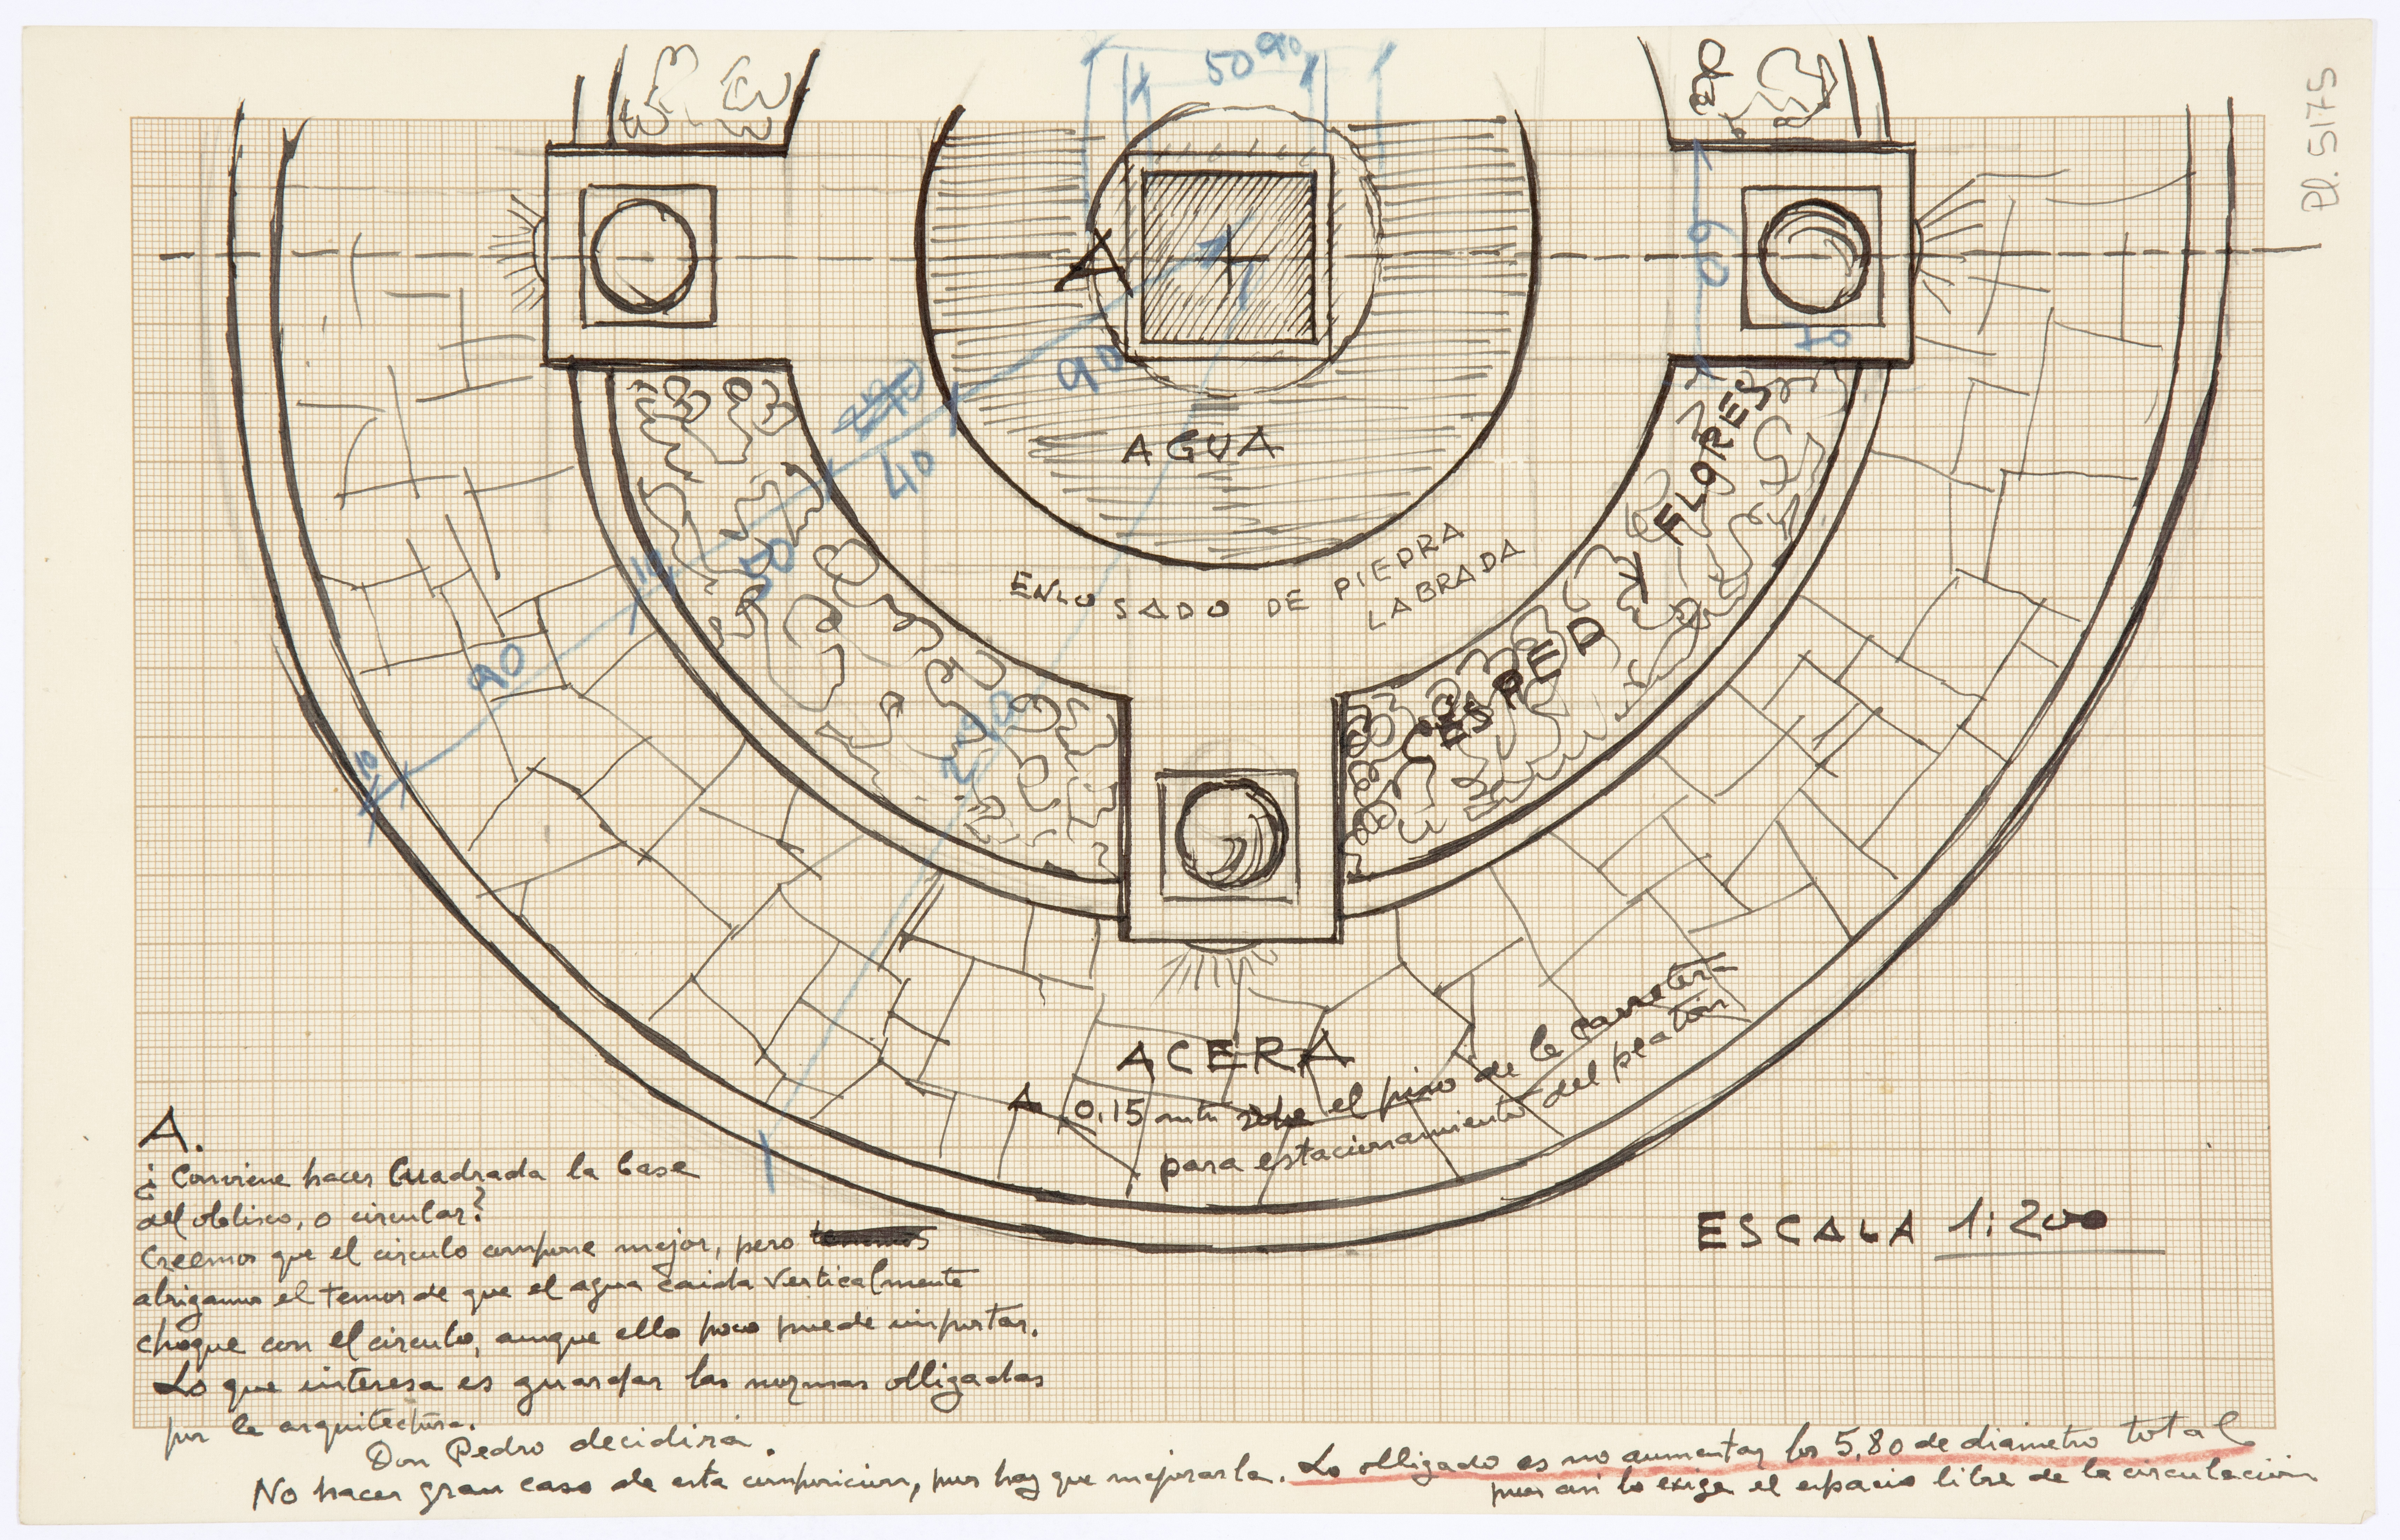 50 90
Pl. 5175
A
60
70
90
40
AGUA
FLORES
50
10
ENLOSADO DE PIEDRA
LABRADA
CESPED Y
90
290
10
ACERA
A 0,15 mts sobe el piso de la carretera
para estacionamiento del peatón
A.
¿Conviene hacer Cuadrada la base
del obelisco, o circular?
Creemos que el circulo compone mejor, pero tenemos
abrigamos el temor de que el agua caida verticalmente
choque con el circulo, aunque ello poco puede importar.
Lo que interesa es guardar las normas obligadas
por la arquitectura.
Don Pedro decidirá.
ESCALA 1:200
No hacer gran caso de esta composicion, pues hay que mejorarla. Lo obligado es no aumentar los 5,80 de diametro total
pues asi lo exige el espacio libre de la circulación